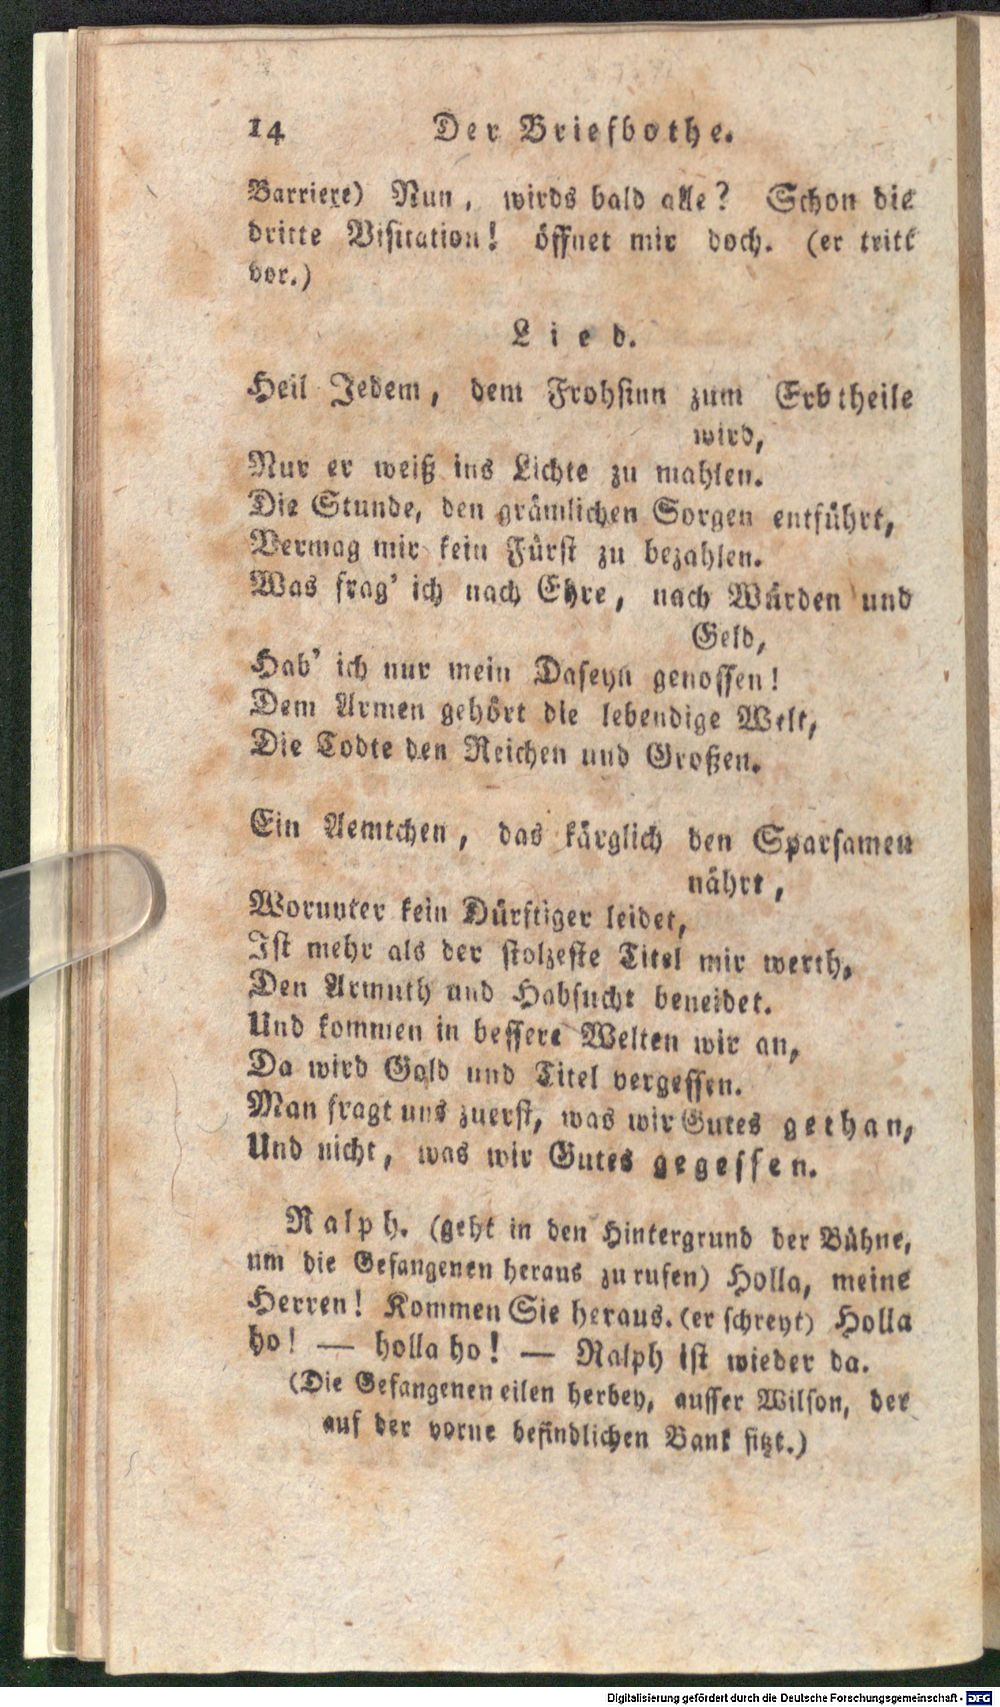 14 Der Briefbothe.
Barriere) Nun, wirds bald alle? Schon die
dritte Visitation! öffnet mir doch. (er tritt
vor.)
Lied.
Heil Jedem, dem Frohsinn zum Erbtheile
wird,
Nur er weiß ins Lichte zu mahlen.
Die Stunde, den grämlichen Sorgen entführt,
Vermag mir kein Fürst zu bezahlen.
Was frag' ich nach Ehre, nach Würden und
Geld,
Hab' ich nur mein Daseyn genossen!
Dem Armen gehört die lebendige Welt,
Die Todte den Reichen und Großen.
Ein Aemtchen, das kärglich den Sparsamen
nährt,
Worunter kein Dürftiger leidet,
Ist mehr als der stolzeste Titel mir werth,
Den Armuth und Habsucht beneidet.
Und kommen in bessere Welten wir an,
Da wird Gold und Titel vergessen.
Man fragt uns zuerst, was wir Gutes gethan,
Und nicht, was wir Gutes gegessen.
Ralph. (geht in den Hintergrund der Bühne,
um die Gefangenen heraus zu rufen) Holla, meine
Herren! Kommen Sie heraus. (er schreyt) Holla
ho! — holla ho! — Ralph ist wieder da.
(Die Gefangenen eilen herbey, ausser Wilson, der
auf der vorne befindlichen Bank sitzt.)
Digitalisierung gefördert durch die Deutsche Forschungsgemeinschaft - DFG